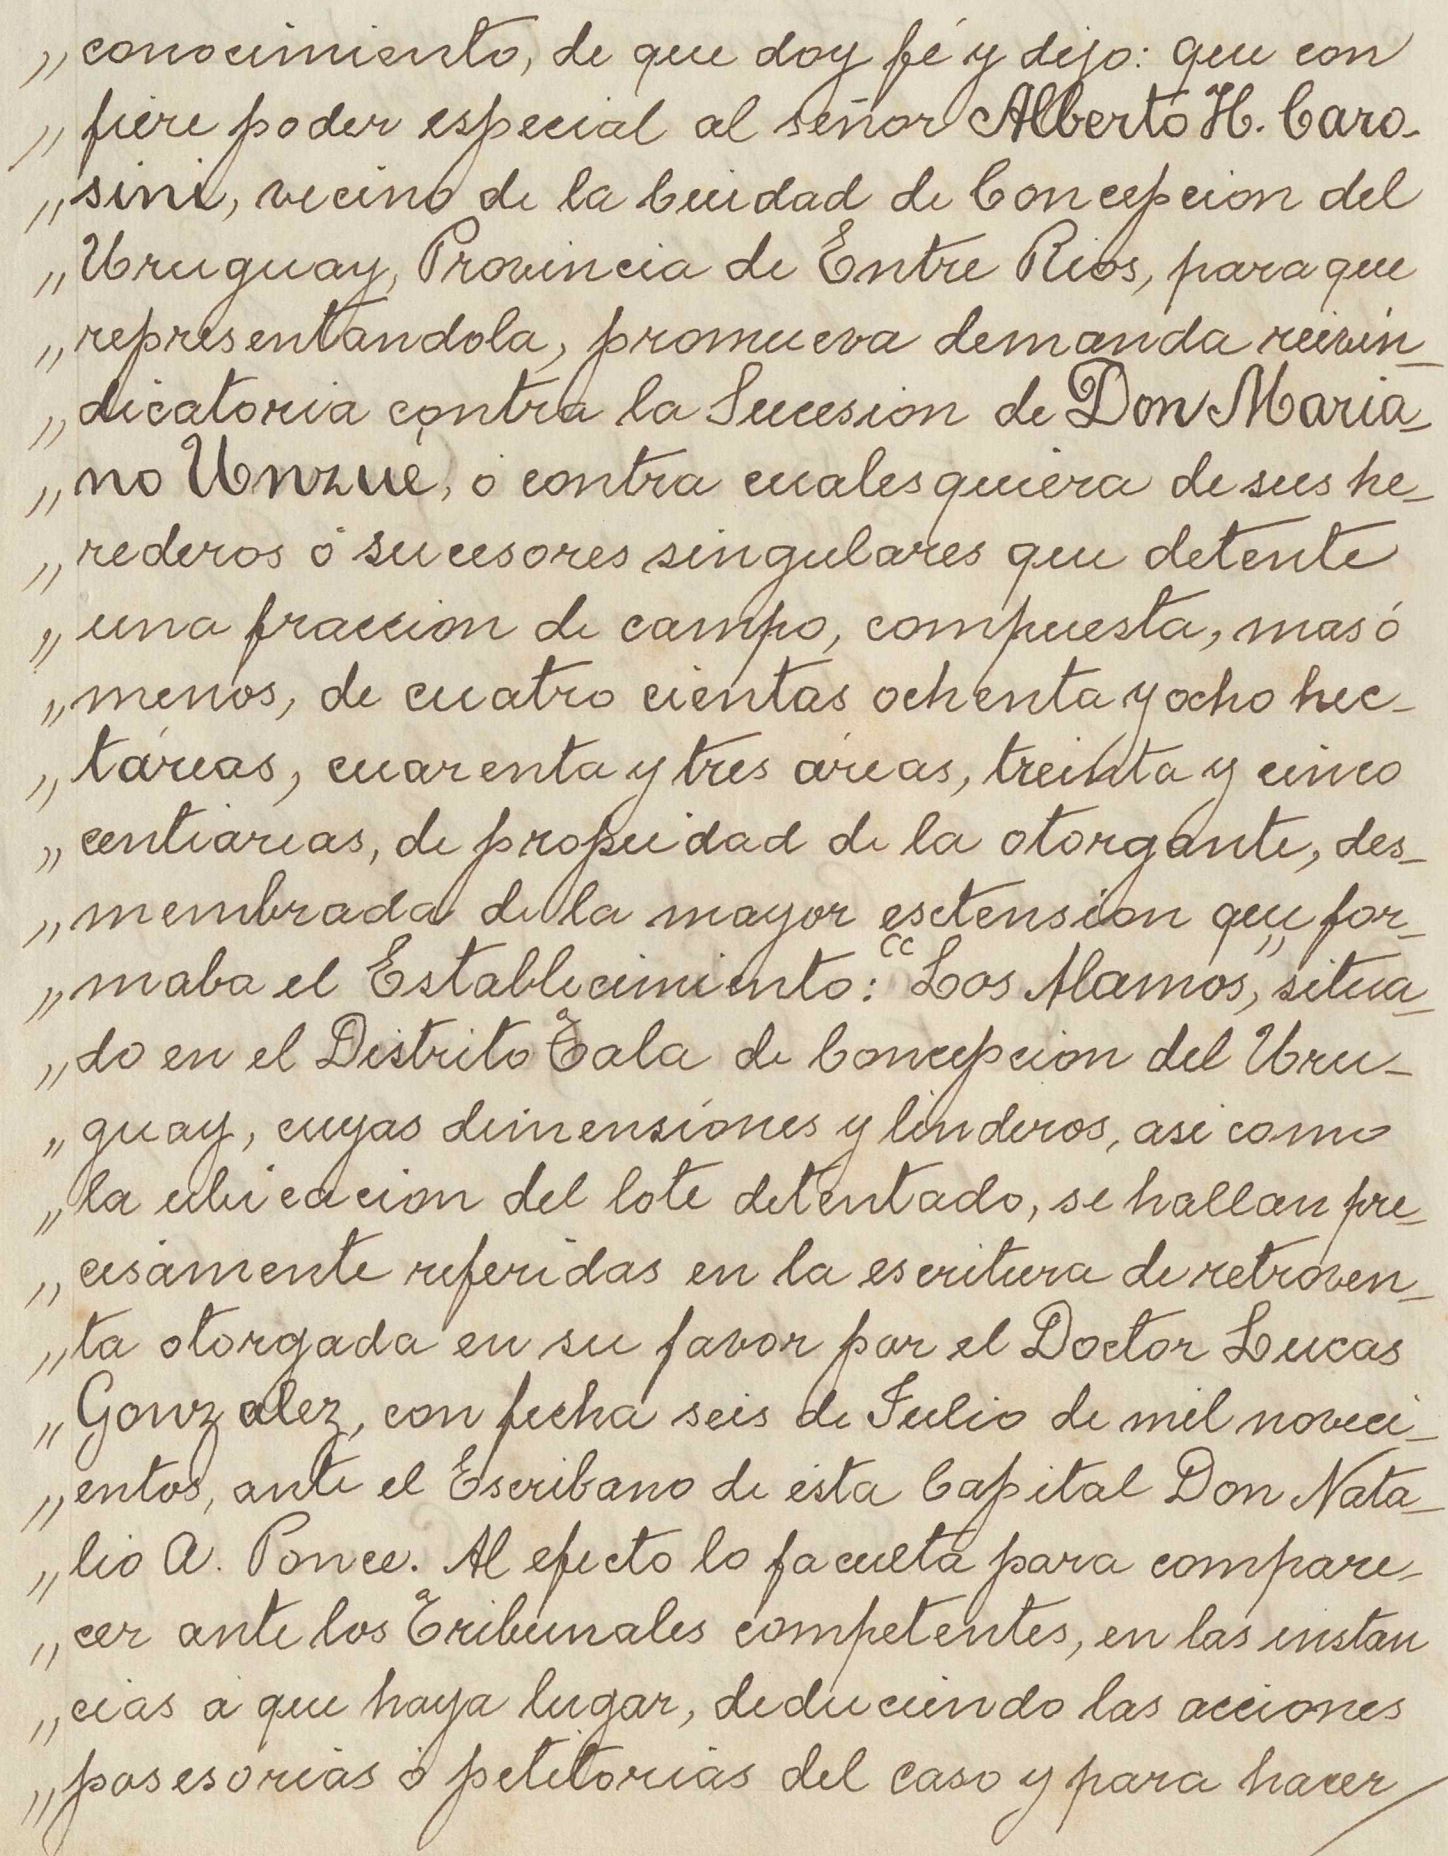 „ conocimiento, de que doy fé y dijo: que con
„ fiere poder especial al señor Alberto H. Caro-
„ sini, vecino de la Ciudad de Concepcion del
„ Uruguay, Provincia de Entre Rios, para que
„ representandola, promueva demanda reivin-
„ dicatoria contra la Sucesion de Don Maria-
„ no Unzué, ó contra cualesquiera de sus he-
„ rederos ó sucesores singulares que detente
„ una fraccion de campo, compuesta, mas ó
„ menos, de cuatro cientas ochenta y ocho hec-
„ táreas, cuarenta y tres áreas, treinta y cinco
„ centiareas, de propiedad de la otorgante, des-
„ membrada de la mayor esctension que for-
„ maba el Establecimiento: “Los Alamos”, situa-
„ do en el Distrito Tala de Concepcion del Uru-
„ guay, cuyas dimensiones y linderos, asi como
„ la ubicacion del lote detentado, se hallan pre-
„ cisamente referidas en la escritura de retroven-
„ ta otorgada en su favor por el Doctor Lucas
„ Gonzalez, con fecha seis de Julio de mil noveci-
„ entos, ante el Escribano de ésta Capital Don Nata-
„ lio A. Ponce. Al efecto lo faculta para compare-
„ cer ante los Tribunales competentes, en las instan
„ cias á que haya lugar, deduciendo las acciones
„ posesorias ó petitorias del caso y para hacer